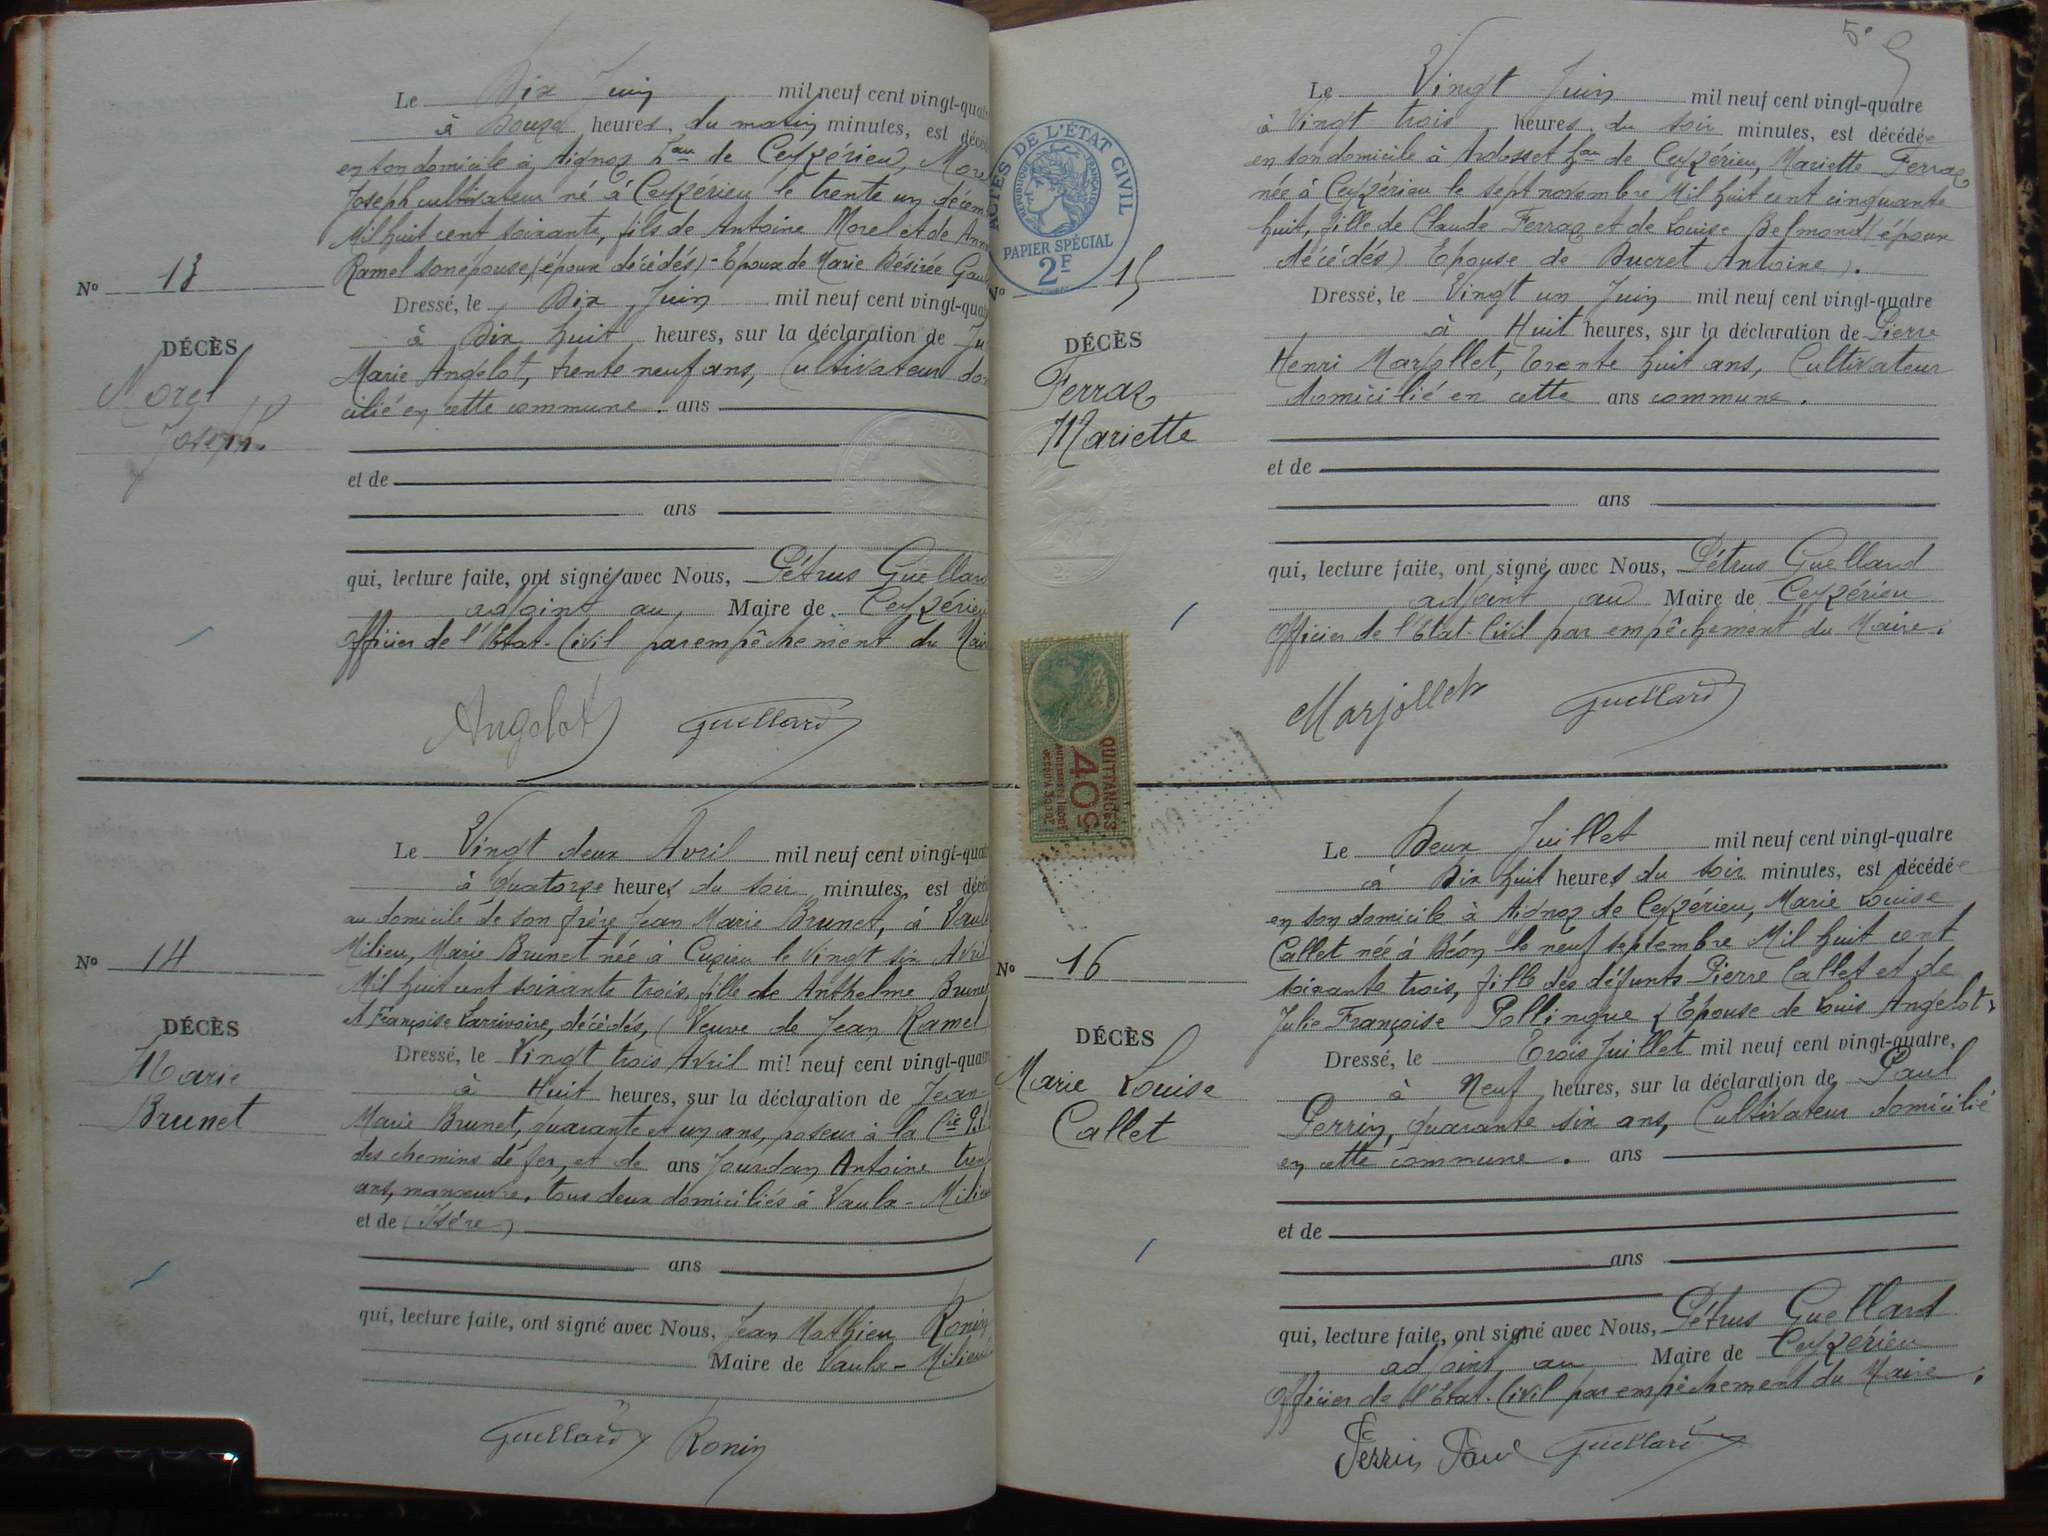 Le Dix Juin mil neuf cent vingt-quat
à Douze heures, du matin minutes, est décé
en son domicile à Aignoz hau de Ceyzérieu, More
Joseph cultivateur né à Ceyzérieu le trente un décem
Mil huit cent soixante, fils de Antoine Morel et de Ann
Ramel son épouse, (époux décédés) - Epoux de Marie Désirée Gau
No 13
Dressé, le Dix Juin mil neuf cent vingt-qua
à Dix huit heures, sur la déclaration de Ju
DÉCÈS
Morel
Joseph.
Marie Angelot, trente neuf ans, Cultivateur dom
cilié en cette commune. ans
et de
ans
qui, lecture faite, ont signé avec Nous, Pétrus Guellard
adjoint au Maire de Ceyzérieu
Officier de l'Etat-Civil par empêchement du Mair
Angelot Guellard
Le Vingt deux Avril mil neuf cent vingt-quat
à Quatorze heures du soir minutes, est décé
au domicile de son frère Jean Marie Brunet, à Vaulx
Milieu, Marie Brunet née à Cuzieu le Vingt six Avril
No 14
Mil huit cent soixante trois, fille de Anthelme Brunet
et Françoise Larrivoire, décédés, (Veuve de Jean Ramel
DÉCÈS
Marie
Brunet
Dressé, le Vingt trois Avril mil neuf cent vingt-quatr
à Huit heures, sur la déclaration de Jean-
Marie Brunet, quarante et un ans, poseur à la Cie
des chemins de fer, et de ans Jourdan Antoine trent
ans, manœuvre, tous deux domiciliés à Vaulx-Milieu
et de (Isére)
ans
qui, lecture faite, ont signé avec Nous, Jean Mathieu Ronin
Maire de Vaulx-Milieu
Guellard Ronin
5e
ACTES DE L'ÉTAT CIVIL
RÉPUBLIQUE FRANÇAISE
PAPIER SPÉCIAL
2F
Le Vingt Juin mil neuf cent vingt-quatre
à Vingt trois heures, du soir minutes, est décédée
en son domicile à Ardosset hau de Ceyzérieu, Mariette Ferraz
née à Ceyzérieu le sept novembre Mil huit cent cinquante
huit, fille de Claude Ferraz et de Louise Belmond (époux
décédés) Epouse de Ducret Antoine).
No 15
Dressé, le Vingt un Juin mil neuf cent vingt-quatre
à Huit heures, sur la déclaration de Pierre
DÉCÈS
Ferraz
Mariette
Henri Marjollet, Trente huit ans, Cultivateur
domicilié en cette ans commune.
et de
ans
qui, lecture faite, ont signé avec Nous, Pétrus Guellard
adjoint au Maire de Ceyzérieu
Officier de l'Etat-Civil par empêchement du Maire.
Marjollet Guellard
QUITTANCES
40c
Le Deux Juillet mil neuf cent vingt-quatre
à Dix huit heures du soir minutes, est décédée
en son domicile à Aignoz de Ceyzérieu, Marie Louise
Callet née à Béon le neuf septembre Mil huit cent
No 16
soixante trois, fille des défunts Pierre Callet et de
Julie Françoise Pollingue (Epouse de Louis Angelot)
DÉCÈS
Marie Louise
Callet
Dressé, le Trois Juillet mil neuf cent vingt-quatre,
à Neuf heures, sur la déclaration de Paul
Perrin, quarante six ans, Cultivateur domicilié
en cette commune. ans
et de
ans
qui, lecture faite, ont signé avec Nous, Pétrus Guellard
adjoint au Maire de Ceyzérieu
Officier de l'Etat-Civil par empêchement du Maire.
Perrin Paul Guellard